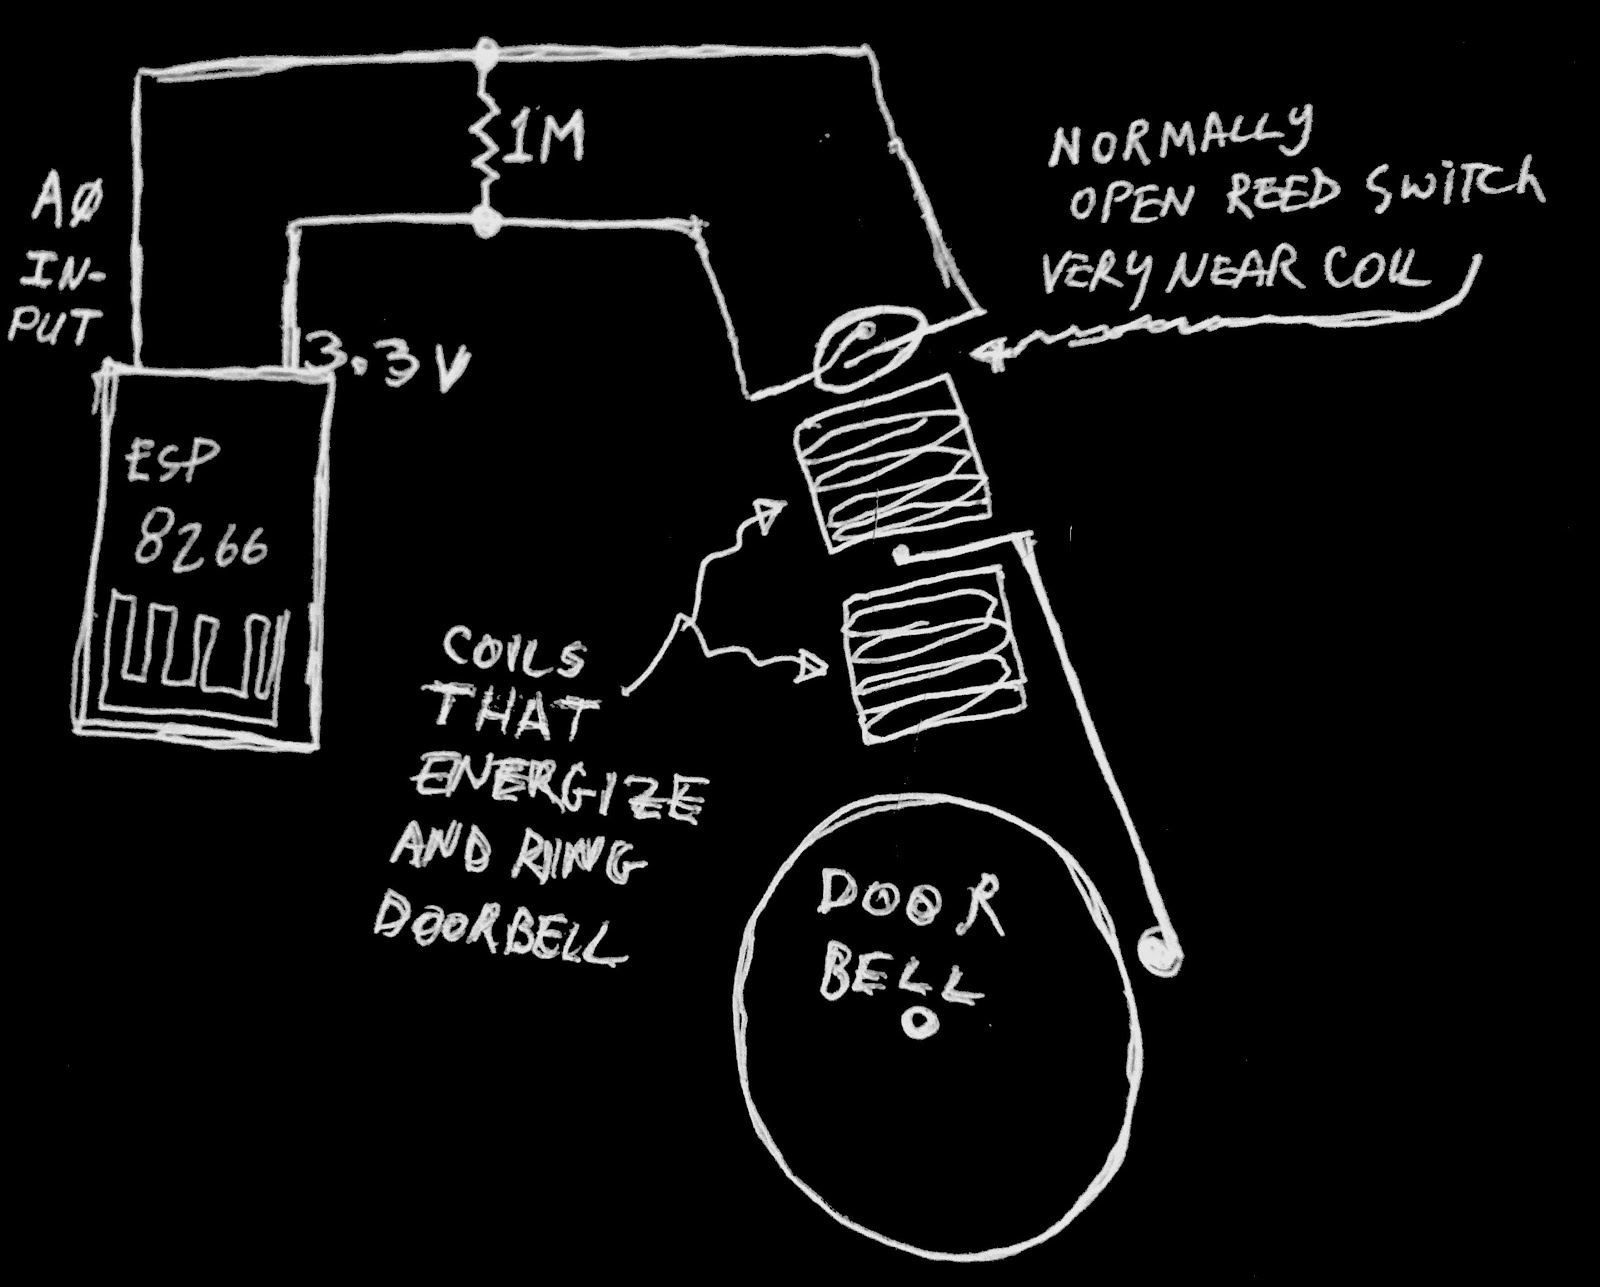 AØ
IN-
PUT
1M
NORMALLY
OPEN REED SWITCH
VERY NEAR COIL
3.3V
ESP
8266
COILS
THAT
ENERGIZE
AND RING
DOORBELL
DOOR
BELL